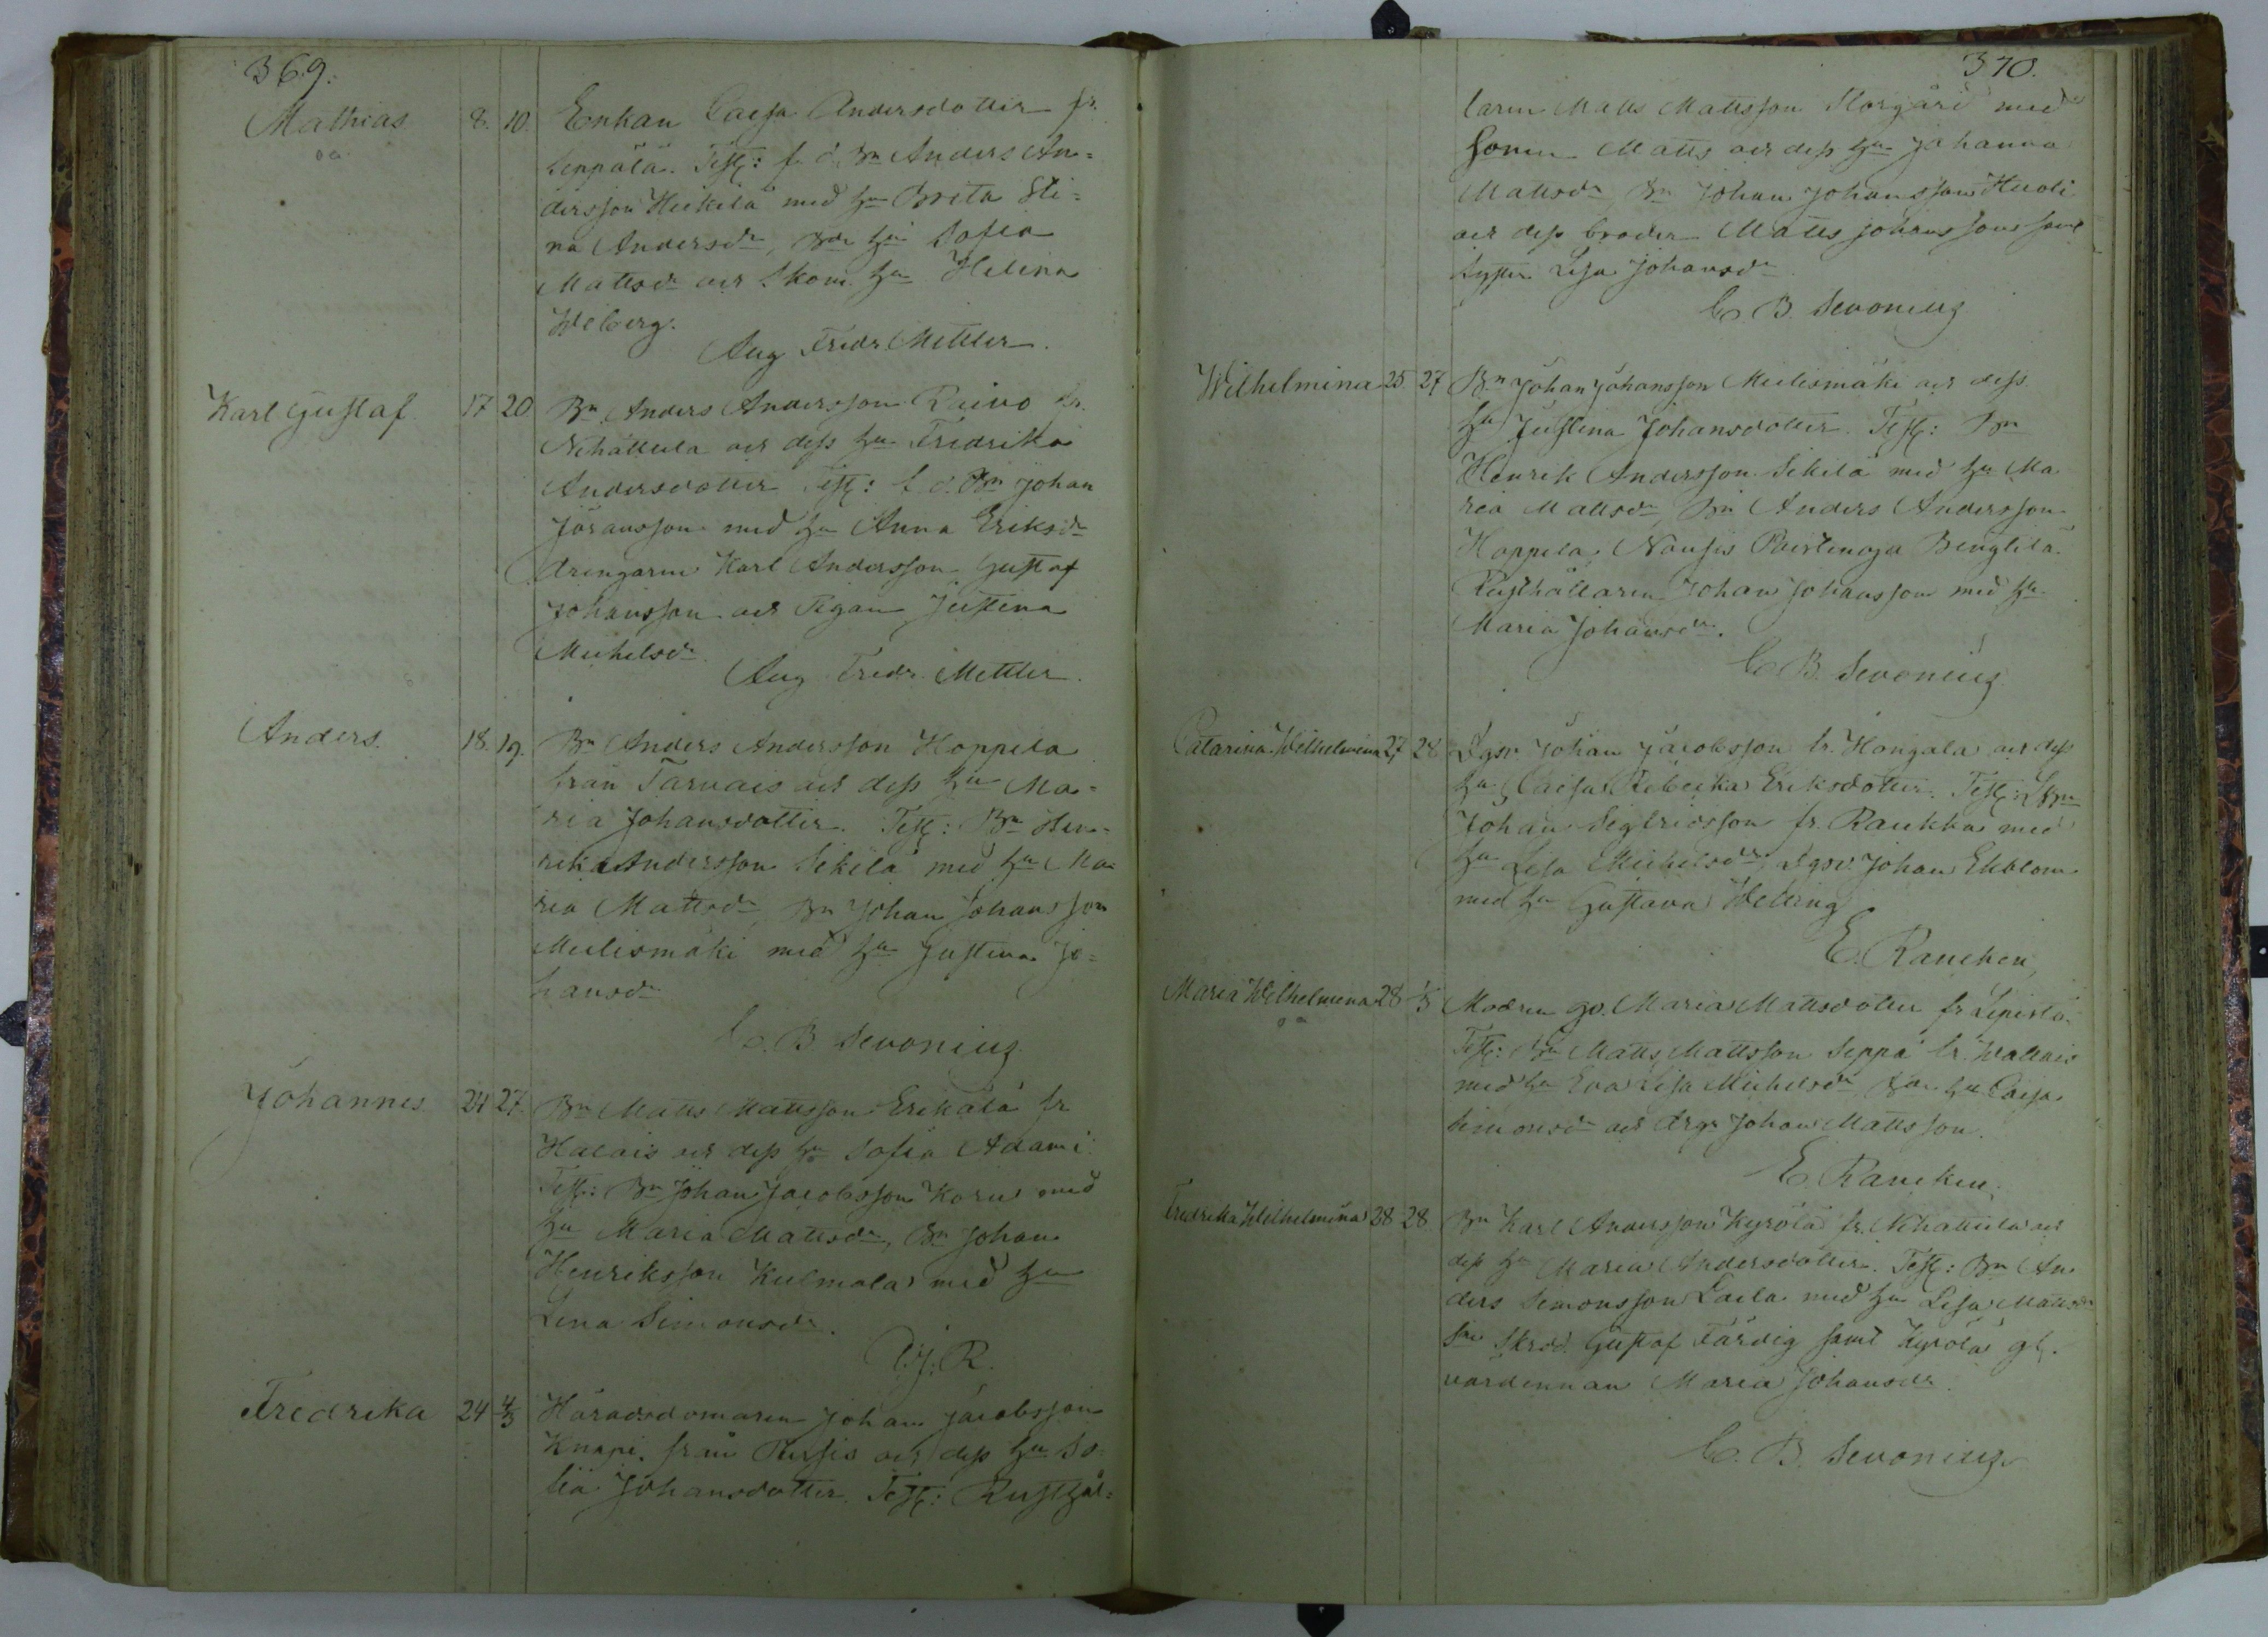 369.
Mathias 8. 10. Enkan Caisa Andersdotter fr.
oä
Seppälä. Test: f. d. Bn Anders An=
dersson Heikilä med hu Brita Sti=
na Andersdr, Bde hu Sofia
Mattsdr och Skom. hu Helena
Weberg.
Aug Fredr Mettler.
Karl Gustaf 17 20 Bn Anders Andersson Raivo fr.
Nihattula och dess hu Fredrika
Andersdotter Test: f. d. Bn Johan
Göransson med hu Anna Eriksdr
drengarne Karl Andersson Gustaf
Johansson och Pigan Justina
Michelsdr.
Aug Fredr. Mettler.
Anders. 18. 19. Bn Anders Andersson Hoppela
från Tarvais och dess hu Ma=
ria Johansdotter. Test: Bn Hen=
rik Andersson Sikilä med hu Ma
ria Mattsdr, Bn Johan Johansson
Meilismäki med hu Justina Jo=
hansdr
C. B. Sevoning.
Johannes 24 27. Bn Matts Mattsson Erikälä fr
Halais och dess hu Sofia Adami
Test: Bn Johan Jacobsson Koru med
hu Maria Mattsdr, Bn Johan
Henriksson Kulmala med hu
Lena Simonsdr.
Fredrika 24 4/3 Häradsdomaren Johan Jacobsson
Knapi från Pursis och dess hu So=
fia Johansdotter. Test: Rusthål=
370.
laren Matts Mattsson Storgård med
Sonen Matts och dess hu Johanna
Mattsdr, Bn Johan Johansson Huoli
och dess broder Matts Johansson samt
syster Lisa Johansdr
C. B. Sevoning
Wilhelmina 25 27 Bn Johan Johansson Meilismäki och dess
hu Justina Johansdotter. Test: Bn
Henrik Andersson Sikilä med hu Ma
ria Mattsdr, Bn Anders Andersson
Hoppela, Nousis Paistenoja Bengtilä
Rusthållaren Johan Johansson med hu
Maria Johansdr.
C. B. Sevoning
Catarina Wilhelmina 27 28 Johan Jacobsson fr. Hongala och dess
hu Caisa Rebecka Eriksdotter. Test:
Johan Sigfridsson fr. Raukka med
hu Lisa Michelsdr, Johan Ekblom
med hu Gustava Weberg
E. Rancken
Maria Wilhelmina 28 1/3 Modren qv. Maria Mattsdotter fr Lepistö.
oä
Test: Bn Matts Mattsson Seppä fr. Wallais
med hu Eva Lisa Michelsdr, Bde hu Caisa
Simonsdr och drgn Johan Mattsson.
E. Rancken.
Fredrika Wilhelmina 28 28 Bn Karl Andersson Kyrölä fr. Nihattula och
dess hu Maria Andersdotter. Test: Bn An
ders Simonsson Laila med hu Lisa Mattsdr
Skrdd. Gustaf Färdig samt Kyrölä gl.
värdinnan Maria Johansdr
C. B. Sevoning